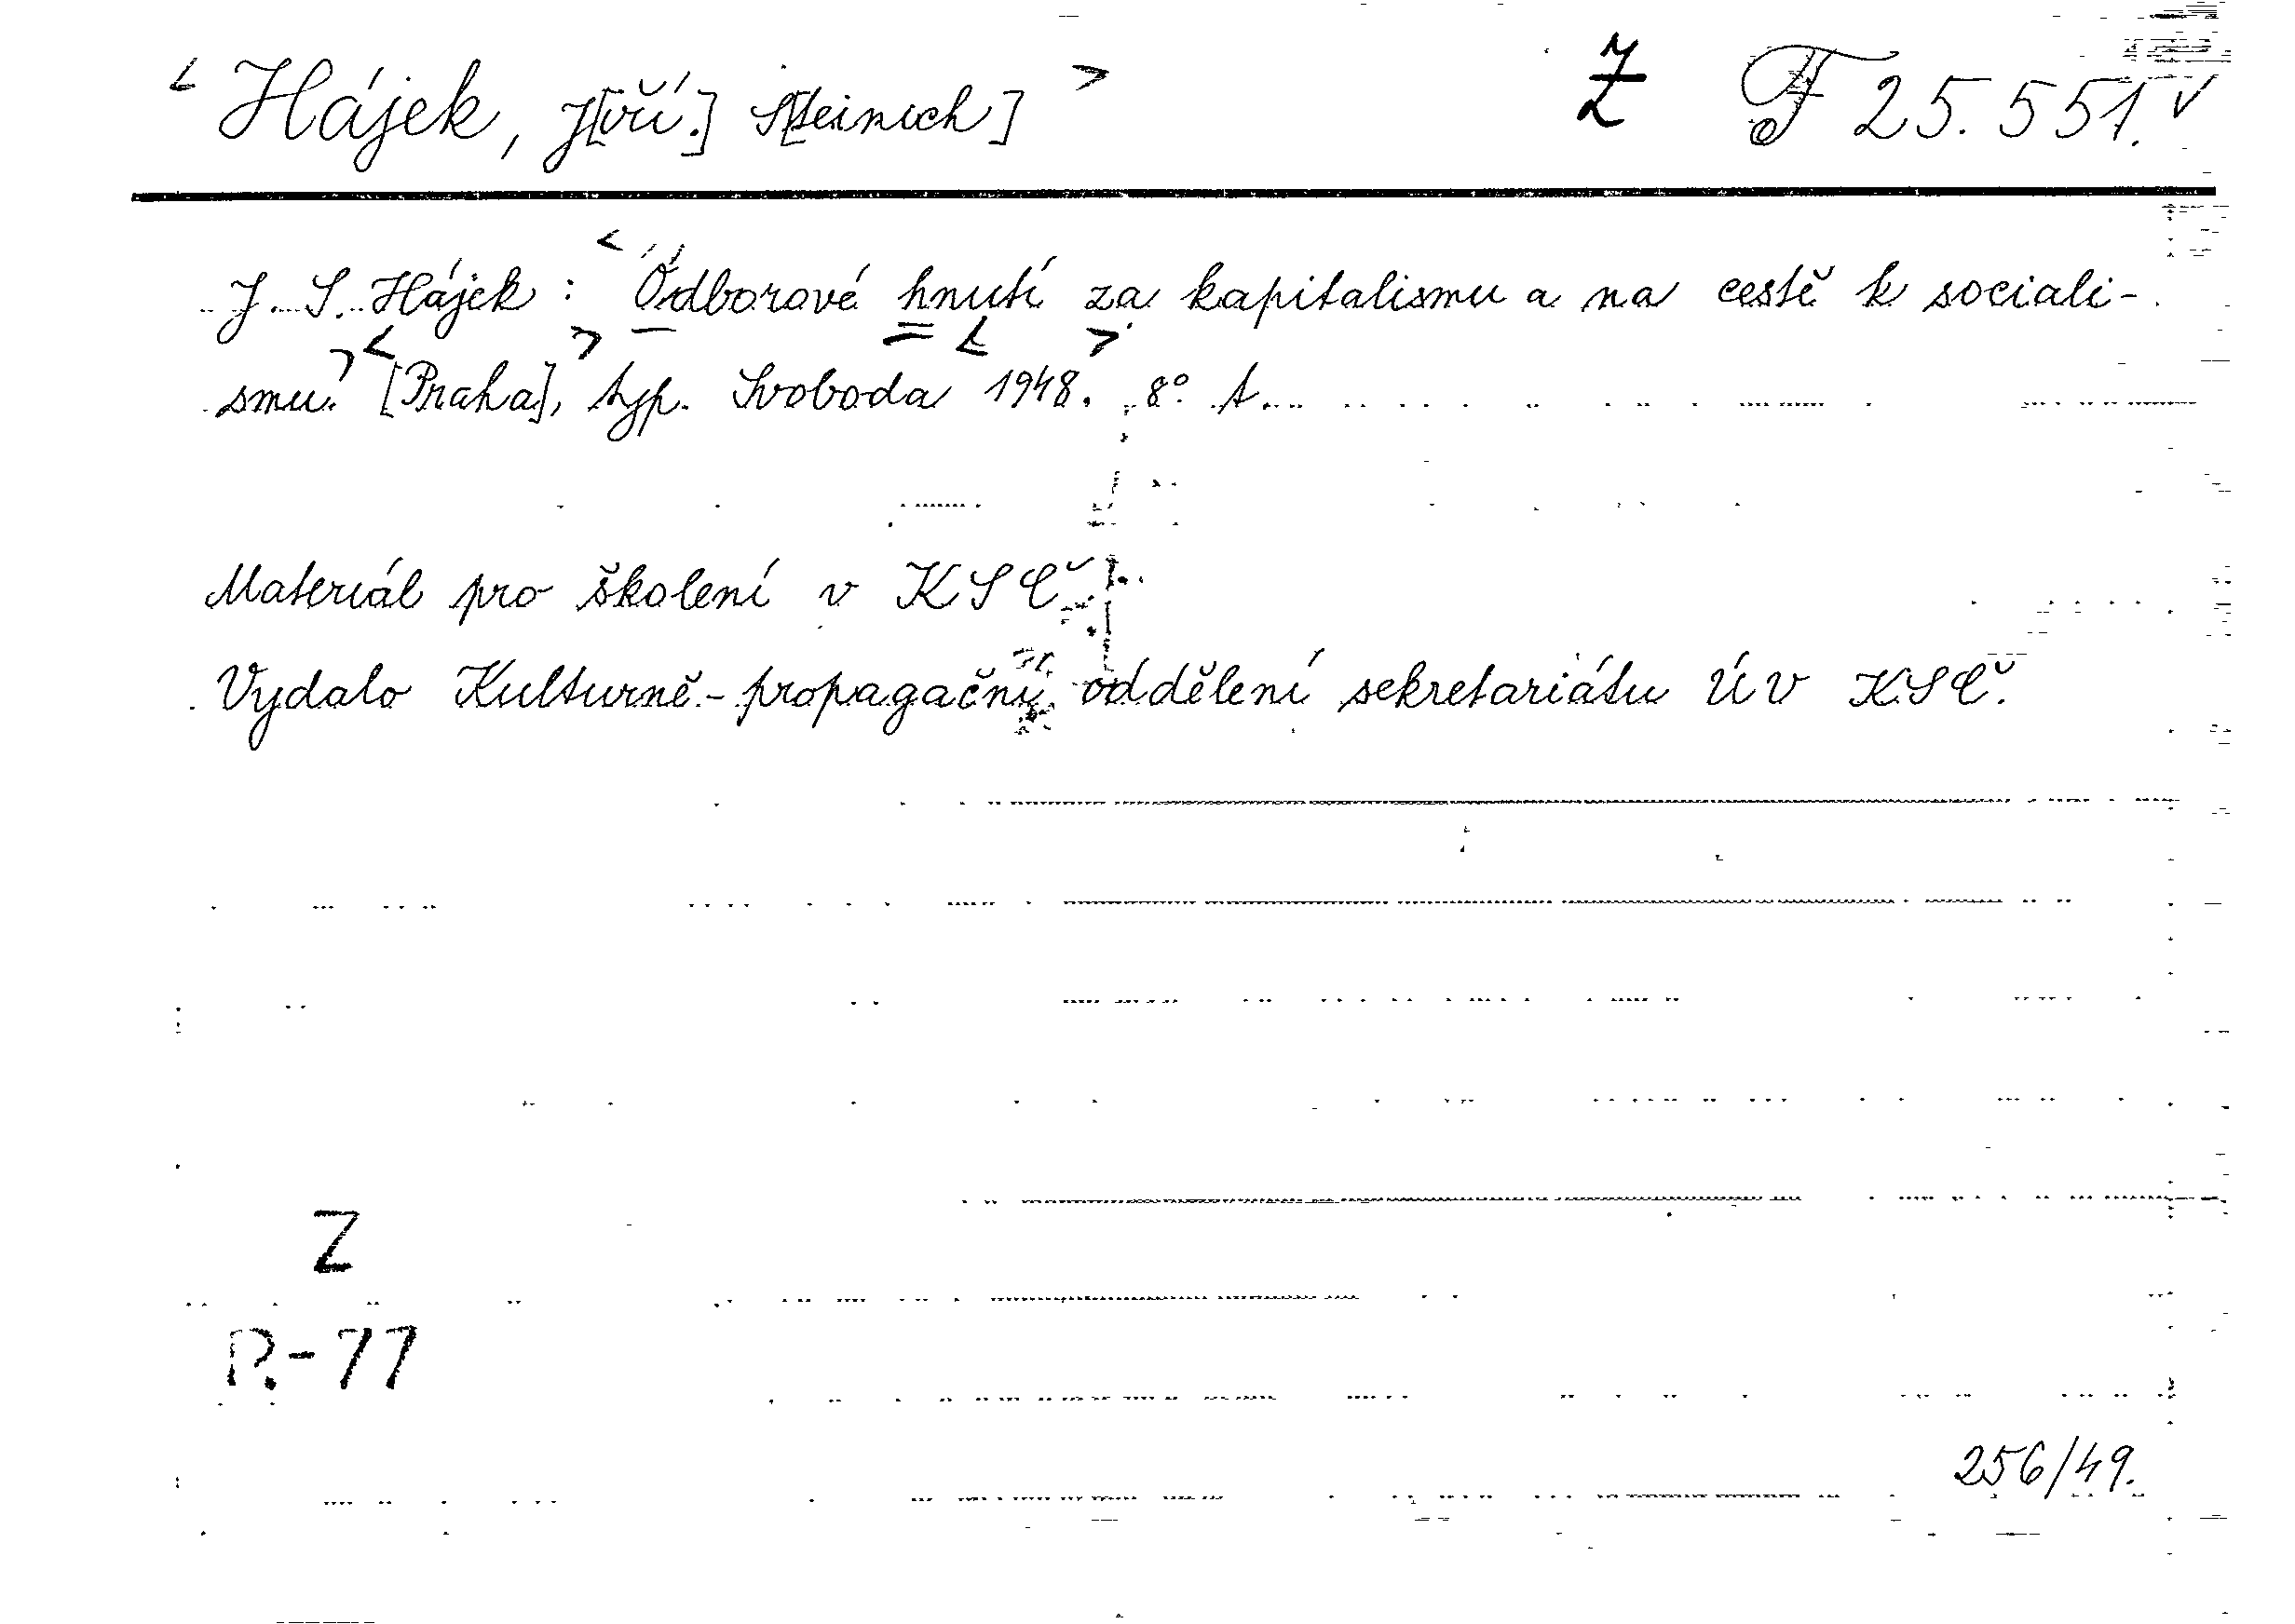 < Hájek, J[iří.] S[teinich] > Ž F 25.551. ✓
J. S. Hájek: < Odborové hnutí za kapitalismu a na cestě k sociali-
smu. > < [Praha], > typ. Svoboda < 1948. > 8°. t.
Materiál pro školení v KSČ.
Vydalo Kulturně-propagační oddělení sekretariátu ÚV KSČ.
Z
P.-77
256/49.